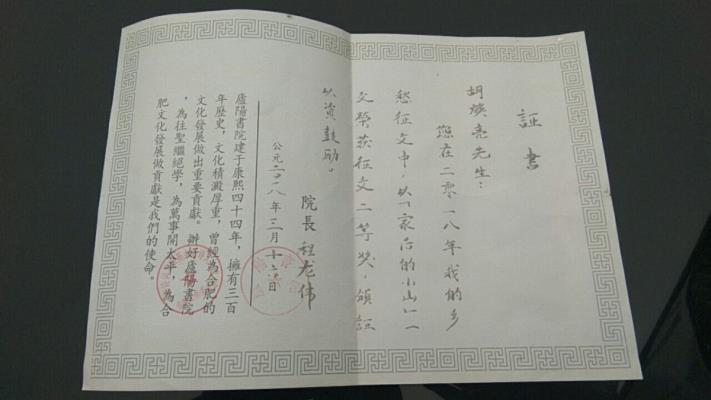 証書
胡焕亮先生：
您在二零一八年我的乡
愁征文中，以「家后的小山」一
文荣获征文二等奖，颁証
以资鼓励。
院長 程龙伟
公元二〇一八年三月十六日
廬陽書院建于康熙四十四年，擁有三百
年歷史，文化積澱厚重，曾經為合肥的
文化發展做出重要貢獻。辦好廬陽書院
，為往聖繼絕學，為萬事開太平，為合
肥文化發展做貢獻是我們的使命。